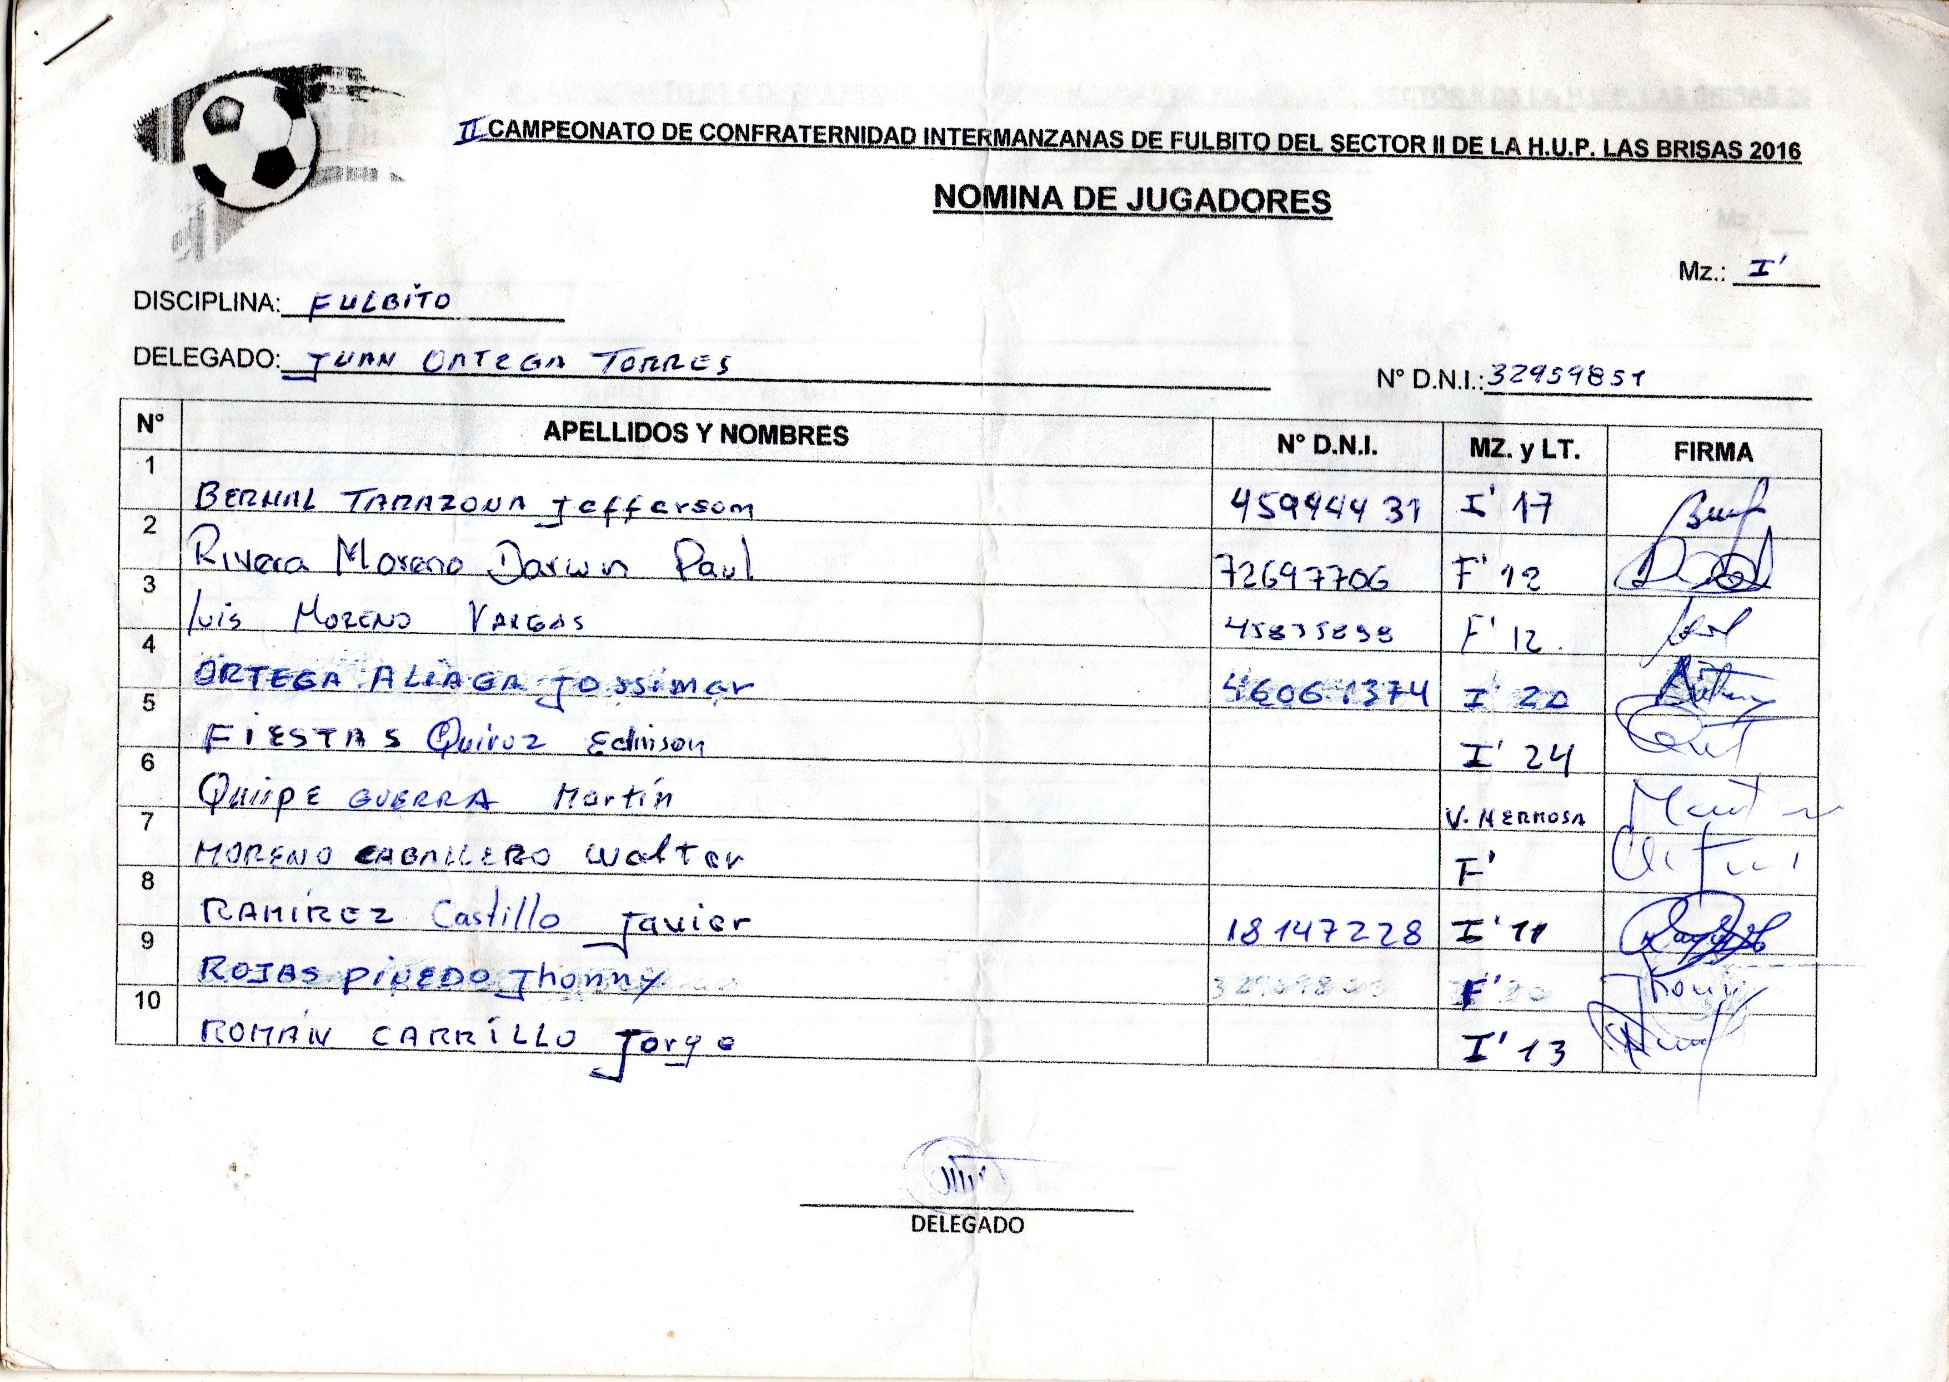 II CAMPEONATO DE CONFRATERNIDAD INTERMANZANAS DE FULBITO DEL SECTOR II DE LA H.U.P. LAS BRISAS 2016
NOMINA DE JUGADORES
Mz.: I'
DISCIPLINA: FULBITO
DELEGADO: JUAN ORTEGA TORRES N° D.N.I.: 32959851
N° APELLIDOS Y NOMBRES N° D.N.I. MZ. y LT. FIRMA
1 BERNAL TARAZONA Jefferson 45944431 I' 17
2 Rivera Moreno Darwin Paul 72697706 F' 12
3 Luis MORENO VARGAS F' 12.
4 ORTEGA ALIAGA Jossimar 46061374 I' 20
5 FIESTAS Quiroz Edinson I' 24
6 Quiipe GUERRA Martín V. HERMOSA
7 MORENO CABALLERO Walter F'
8 RAMÍREZ Castillo Javier 18147228 I' 11
9 ROJAS PINEDO Jhonny F'
10 ROMÁN CARRILLO Jorge I' 13
DELEGADO